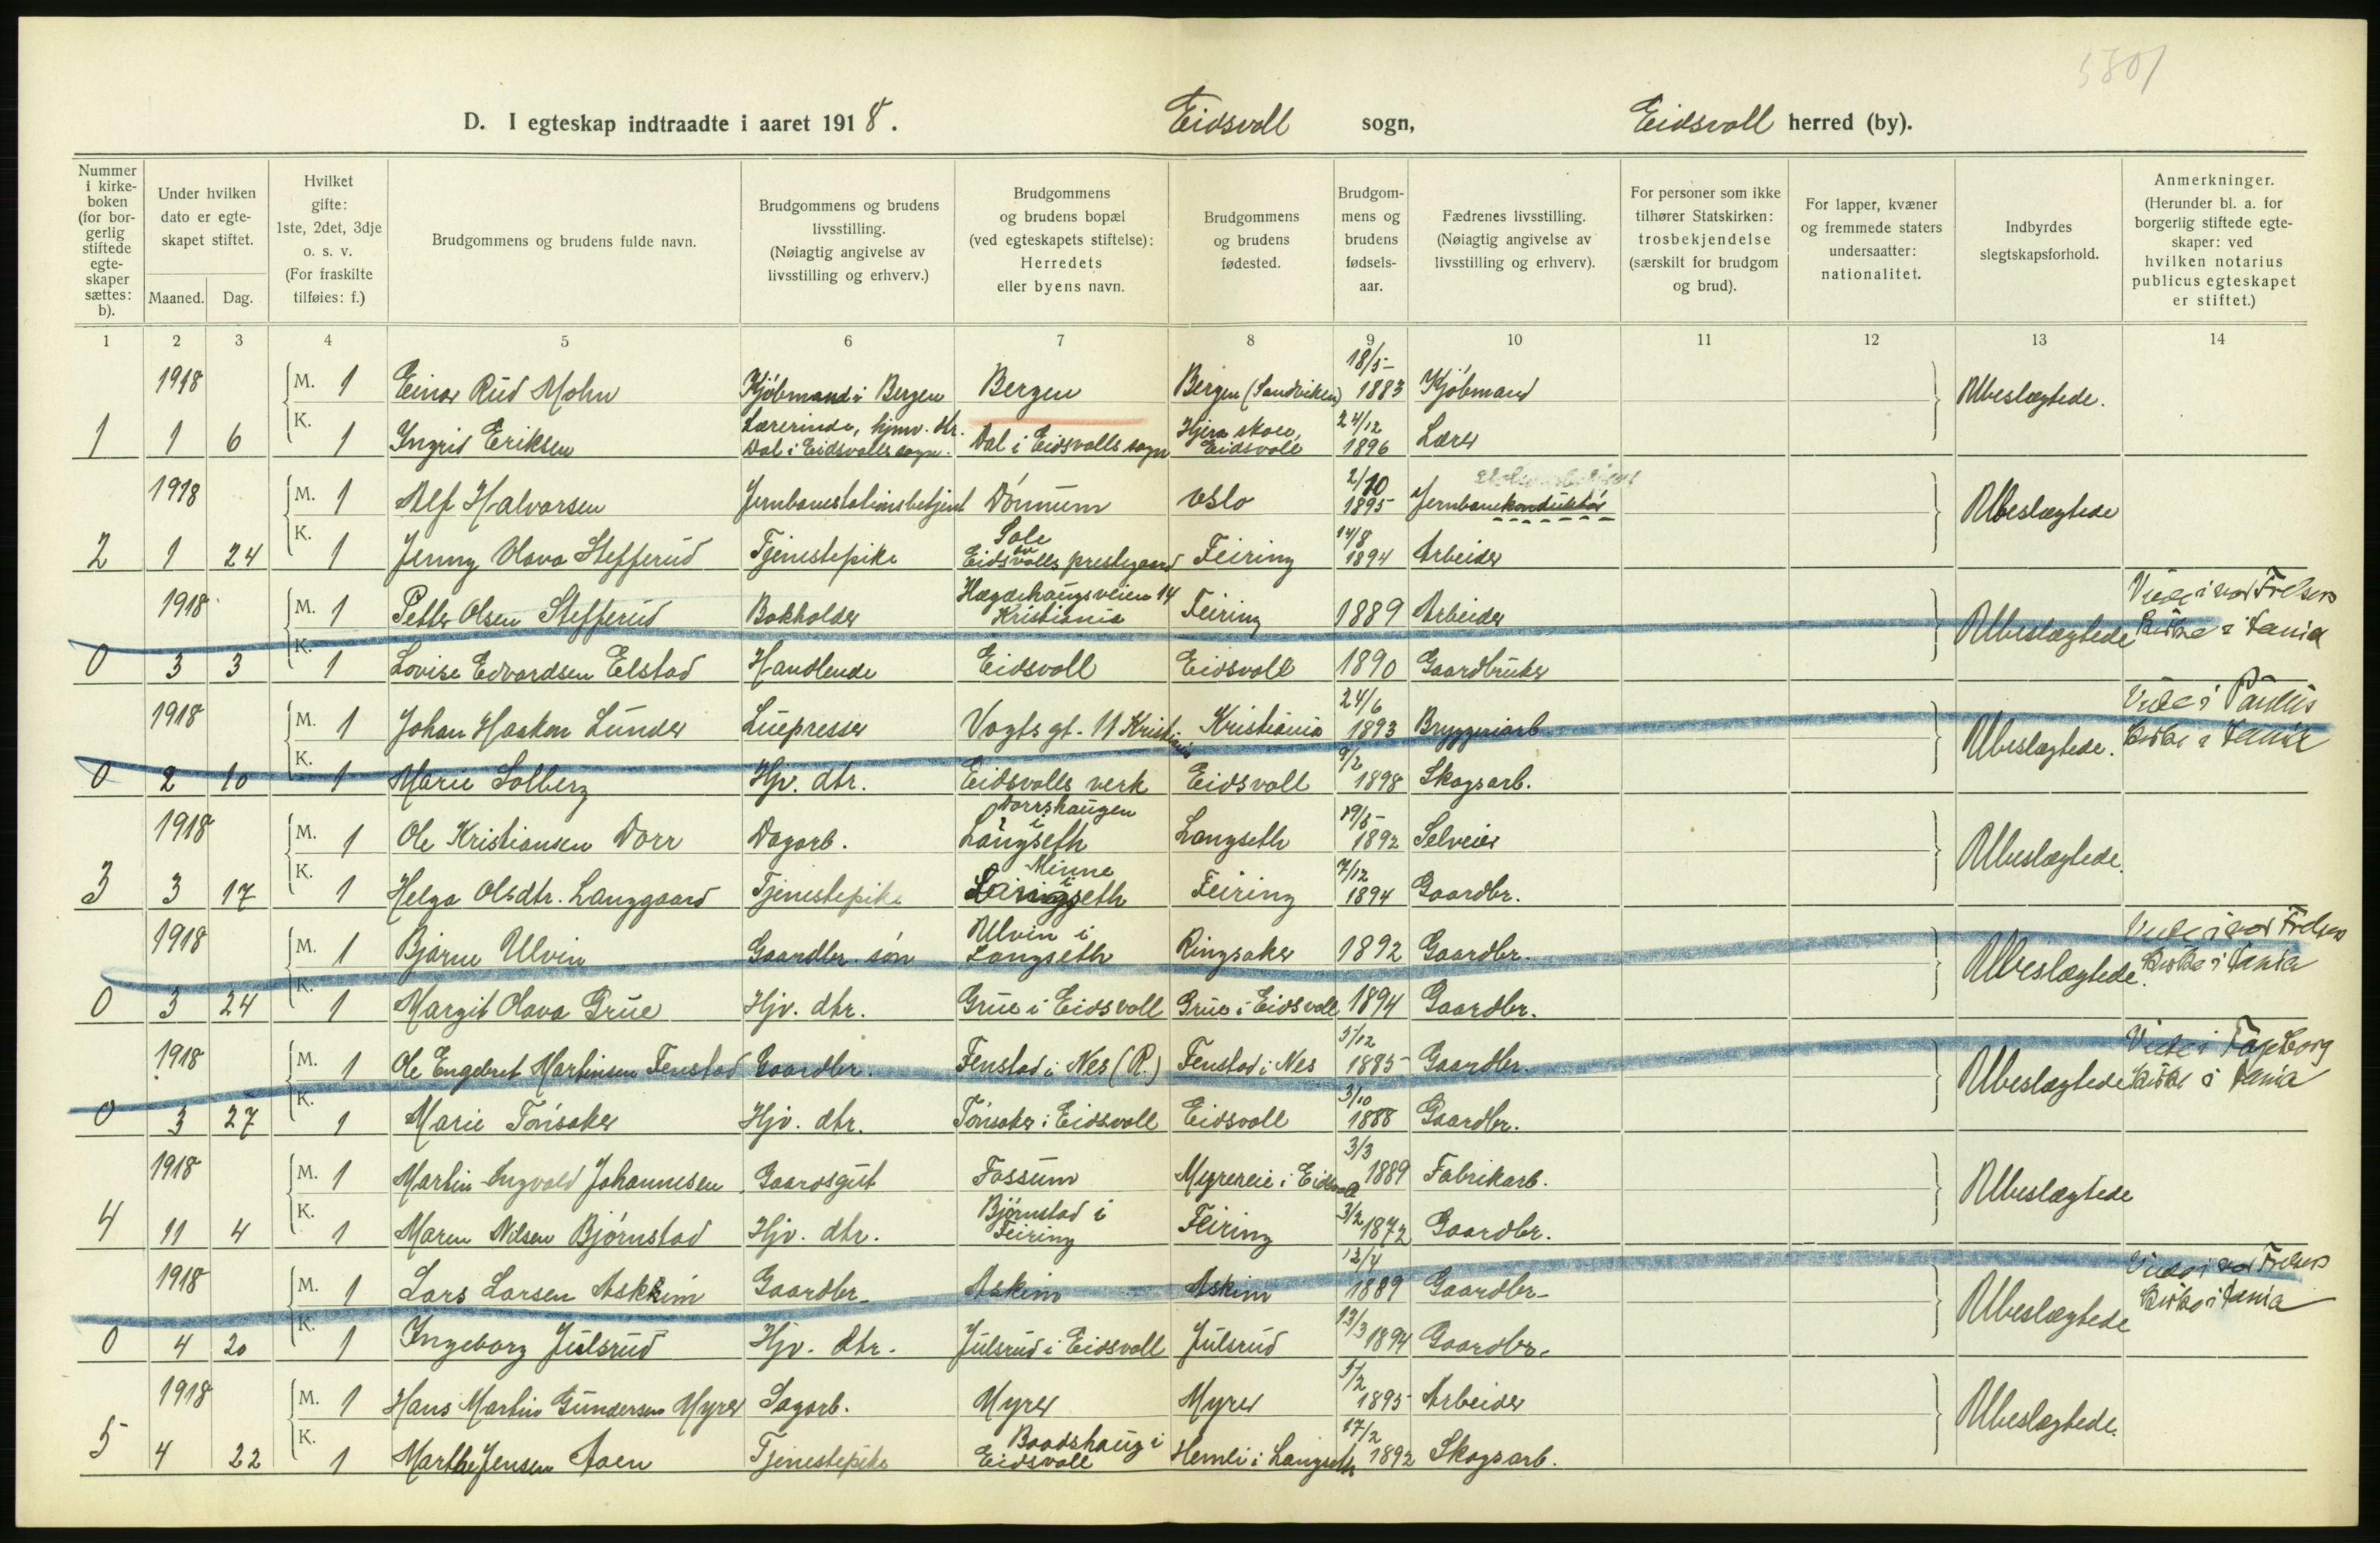 5801
D. I egteskap indtraadte i aaret 1918. Eidsvoll sogn, Eidsvoll herred (by).
Nummer i kirke-boken (for bor-gerlig stiftede egte-skaper sættes: b).
Under hvilken dato er egte-skapet stiftet.
Maaned. Dag.
Hvilket gifte: 1ste, 2det, 3dje o. s. v. (For fraskilte tilføies: f.)
Brudgommens og brudens fulde navn.
Brudgommens og brudens livsstilling. (Nøiagtig angivelse av livsstilling og erhverv.)
Brudgommens og brudens bopæl (ved egteskapets stiftelse): Herredets eller byens navn.
Brudgommens og brudens fødested.
Brudgom-mens og brudens fødsels-aar.
Fædrenes livsstilling. (Nøiagtig angivelse av livsstilling og erhverv).
For personer som ikke tilhører Statskirken: trosbekjendelse (særskilt for brudgom og brud).
For lapper, kvæner og fremmede staters undersaatter: nationalitet.
Indbyrdes slegtskapsforhold.
Anmerkninger. (Herunder bl. a. for borgerlig stiftede egte-skaper: ved hvilken notarius publicus egteskapet er stiftet.)
1 2 3 4 5 6 7 8 9 10 11 12 13 14
1918 M. 1 Einar Rud Mohn Kjöbmand i Bergen Bergen Bergen (Sandviken) 18/5 1883 Kjöbmand Ubeslægtede.
1 1 6 K. 1 Ingrid Eriksen Lærerinde, hjmv. dtr. Dal i Eidsvolls sogn. Dal i Eidsvolls sogn Hjera skole, Eidsvoll 24/12 1896 Lærer
1918 M. 1 Alf Halvorsen Jernbanestationsbetjent Dönnum Oslo 2/10 1895 Jernbanekonduktör Ubeslægtede
2 1 24 K. 1 Jenny Olava Stefferud Tjenestepike Sole av Eidsvolls prestegaard Feiring 14/8 1894 Arbeider
1918 M. 1 Petter Olsen Stefferud Bokholder Hægdehaugsveien 14 Kristiania Feiring 1889 Arbeider Ubeslægtede Viede i vor Frelsers Kirke i Kania
0 3 3 K. 1 Lovise Edvardsen Elstad Handlende Eidsvoll Eidsvoll 1890 Gaardbruker
1918 M. 1 Johan Haakon Lunder Luepresser Vogts gt. 11 Kristiania Kristiania 24/6 1893 Bryggeriarb. Ubeslægtede. Viede i Paulus Kirke i Kania
0 2 10 K. 1 Marie Solberg Hjv. dtr. Eidsvolls verk Eidsvoll 9/2 1898 Skogsarb.
1918 M. 1 Ole Kristiansen Dorr Dagarb. Dorrshaugen i Langseth Langseth 19/5 1892 Selveier Ubeslægtede.
3 3 17 K. 1 Helga Olsdtr. Langgaard Tjenestepike Minne i Langseth Feiring 7/12 1894 Gaardbr.
1918 M. 1 Bjarne Ulvin Gaardbr. sön Ulvin i Langseth Ringsaker 1892 Gaardbr. Ubeslægtede. Viede i vor Frelsers Kirke i Kania
0 3 24 K. 1 Margit Olava Grue Hjv. dtr. Grue i Eidsvoll Grue i Eidsvoll 1894 Gaardbr.
1918 M. 1 Ole Engebret Martinsen Fenstad Gaardbr. Fenstad i Nes (R.) Fenstad i Nes 5/12 1885 Gaardbr. Ubeslægtede Viede i Fagerborg Kirke i Kania
0 3 27 K. 1 Marie Tönsaker Hjv. dtr. Tönsaker i Eidsvoll Eidsvoll 3/10 1888 Gaardbr.
1918 M. 1 Martin Ingvald Johannesen Gaardsgut Fossum Myrereie i Eidsvoll 3/3 1889 Fabrikarb. Ubeslægtede
4 11 4 K. 1 Maren Nilsen Björnstad Hjv. dtr. Björnstad i Feiring Feiring 3/2 1872 Gaardbr.
1918 M. 1 Lars Larsen Askim Gaardbr. Askim Askim 12/4 1889 Gaardbr. Ubeslægtede Viede i vor Frelsers Kirke i Kania
0 4 20 K. 1 Ingeborg Julsrud Hjv. dtr. Julsrud i Eidsvoll Julsrud 13/3 1894 Gaardbr.
1918 M. 1 Hans Martin Gundersen Myrer Sagarb. Myrer Myrer 5/2 1895 Arbeider Ubeslægtede.
5 4 22 K. 1 Marthe Jensen Moen Tjenestepike Baadshaug i Eidsvoll Hemli i Langseth 17/2 1892 Skogsarb.